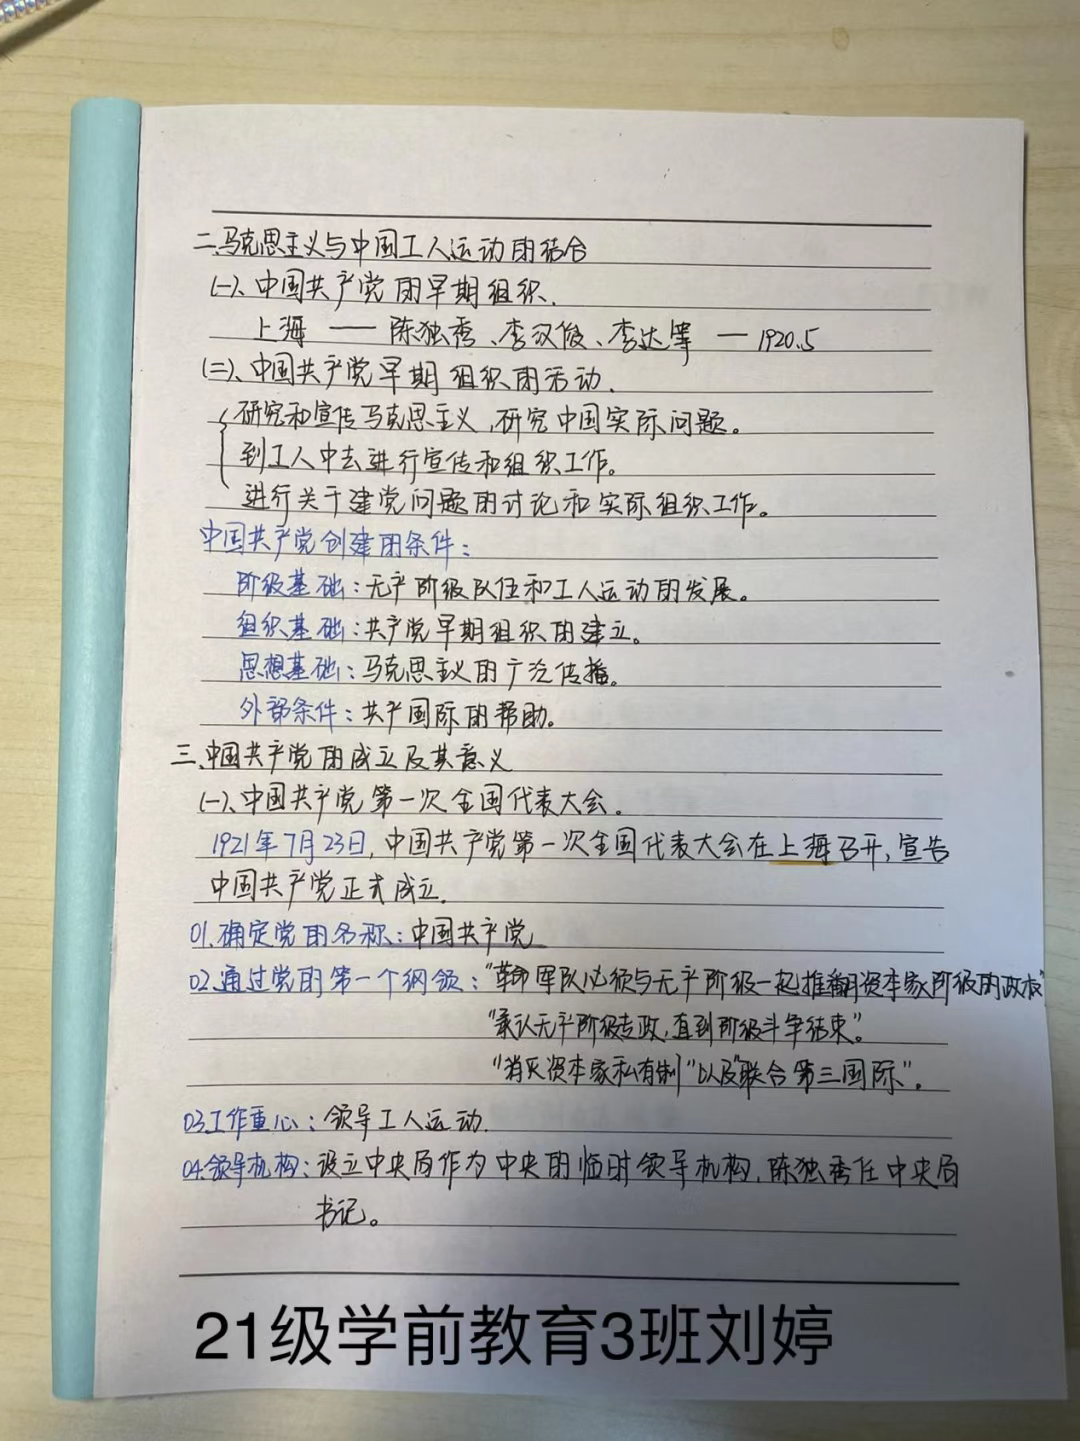 二、马克思主义与中国工人运动的结合
(一)、中国共产党的早期组织.
上海 —— 陈独秀、李汉俊、李达等 — 1920.5
(二)、中国共产党早期组织的活动.
研究和宣传马克思主义,研究中国实际问题。
到工人中去进行宣传和组织工作。
进行关于建党问题的讨论和实际组织工作。
中国共产党创建的条件:
阶级基础:无产阶级队伍和工人运动的发展。
组织基础:共产党早期组织的建立。
思想基础:马克思主义的广泛传播。
外部条件:共产国际的帮助。
三、中国共产党的成立及其意义
(一)、中国共产党第一次全国代表大会.
1921年7月23日,中国共产党第一次全国代表大会在上海召开,宣告
中国共产党正式成立.
01.确定党的名称:中国共产党
02.通过党的第一个纲领:"革命军队必须与无产阶级一起推翻资本家阶级的政权"
"承认无产阶级专政,直到阶级斗争结束"。
"消灭资本家私有制"以及"联合第三国际"。
03.工作重心:领导工人运动.
04.领导机构:设立中央局作为中央的临时领导机构,陈独秀任中央局
书记。
21级学前教育3班刘婷